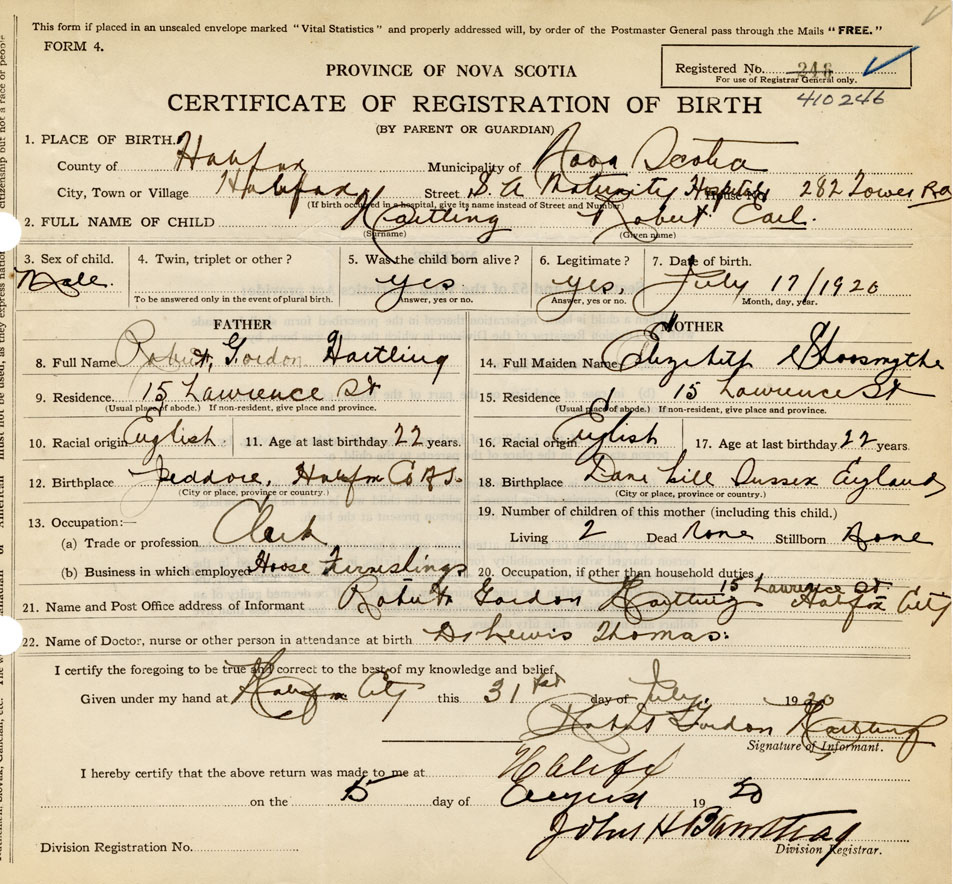 This form if placed in an unsealed envelope marked "Vital Statistics" and properly addressed will, by order of the Postmaster General pass through the Mails "FREE."
FORM 4.
Registered No. 248
For use of Registrar General only.
410246
PROVINCE OF NOVA SCOTIA
CERTIFICATE OF REGISTRATION OF BIRTH
(BY PARENT OR GUARDIAN)
1. PLACE OF BIRTH.
County of Halifax Municipality of Nova Scotia
City, Town or Village Halifax Street S. A Maternity Hospital House No. 282 Tower Ro
(If birth occurred in a hospital, give its name instead of Street and Number)
2. FULL NAME OF CHILD Hartling Robert Earl.
(Surname) (Given name)
3. Sex of child. Male.
4. Twin, triplet or other?
To be answered only in the event of plural birth.
5. Was the child born alive? yes
Answer, yes or no.
6. Legitimate? yes,
Answer, yes or no.
7. Date of birth. July 17/1920
Month, day, year.
FATHER
8. Full Name Robert, Gordon Hartling
9. Residence. 15 Lawrence St
(Usual place of abode.) If non-resident, give place and province.
10. Racial origin English. 11. Age at last birthday 22 years.
12. Birthplace Jeddore, Halifax Co N.S.
(City or place, province or country.)
13. Occupation:—
(a) Trade or profession Clerk
(b) Business in which employed House Furnishings
MOTHER
14. Full Maiden Name Elizabeth Shoosmythe
15. Residence 15 Lawrence St
(Usual place of abode.) If non-resident, give place and province.
16. Racial origin English 17. Age at last birthday 22 years.
18. Birthplace Dane Hill Sussex England
(City or place, province or country.)
19. Number of children of this mother (including this child.)
Living 2 Dead None Stillborn None
20. Occupation, if other than household duties
21. Name and Post Office address of Informant Robert Gordon Hartling 15 Lawrence St. Halifax City
22. Name of Doctor, nurse or other person in attendance at birth Dr Lewis Thomas.
I certify the foregoing to be true and correct to the best of my knowledge and belief,
Given under my hand at Halifax City this 31st day of July. 1920
Robert Gordon Hartling
Signature of Informant.
I hereby certify that the above return was made to me at Halifx
on the 5 day of August 1920
John H
Division Registration No. Division Registrar.